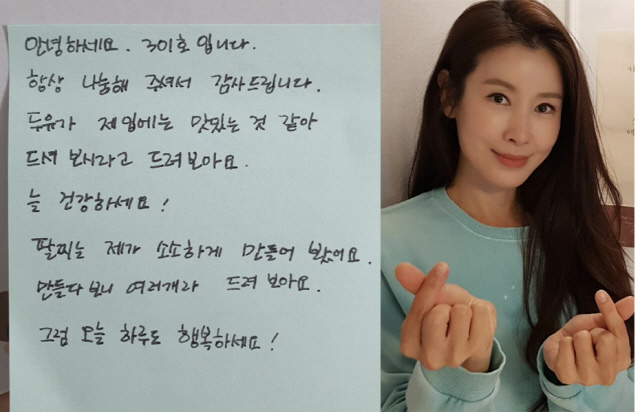 안녕하세요. 301호 입니다.
항상 나눔해 주셔서 감사드립니다.
두유가 제 입에는 맛있는 것 같아
드셔 보시라고 드려보아요.
늘 건강하세요!
팔찌는 제가 소소하게 만들어 봤어요.
만들다보니 여러개라 드려 보아요.
그럼 오늘 하루도 행복하세요!